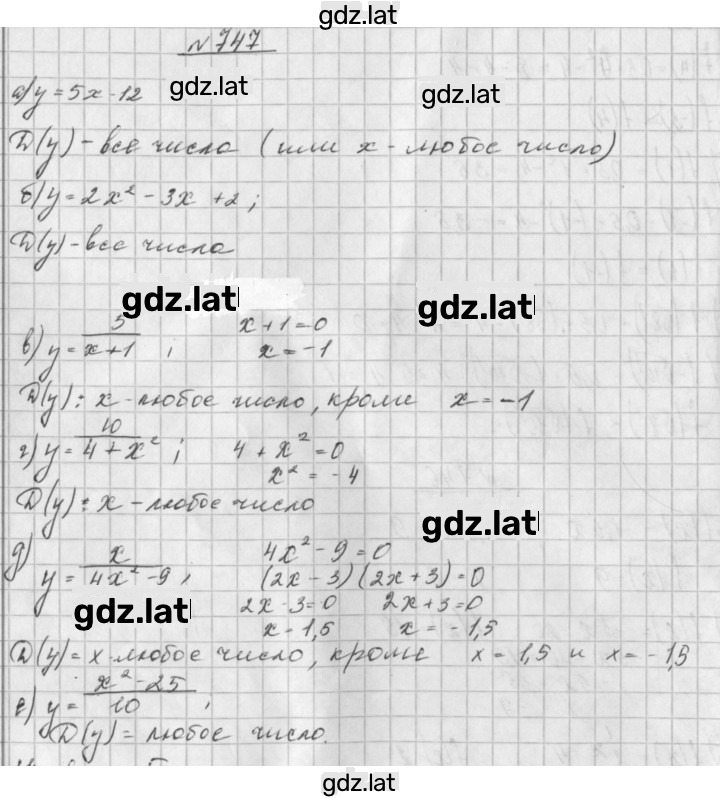 gdz.lat
№747
а) y = 5x - 12 gdz.lat gdz.lat
D(y) - все числа (или x - любое число)
б) y = 2x² - 3x + 2;
D(y) - все числа
gdz.lat gdz.lat
в) y = 5/(x+1); x + 1 = 0
x = -1
D(y): x - любое число, кроме x = -1
г) y = 10/(4 + x²); 4 + x² = 0
x² = -4
D(y): x - любое число
gdz.lat
д) y = x/(4x² - 9), 4x² - 9 = 0
(2x - 3)(2x + 3) = 0
gdz.lat 2x - 3 = 0 2x + 3 = 0
x - 1,5 x = -1,5
D(y) = x - любое число, кроме x = 1,5 и x = -1,5
е) y = (x² - 25)/10;
D(y) = любое число.
gdz.lat